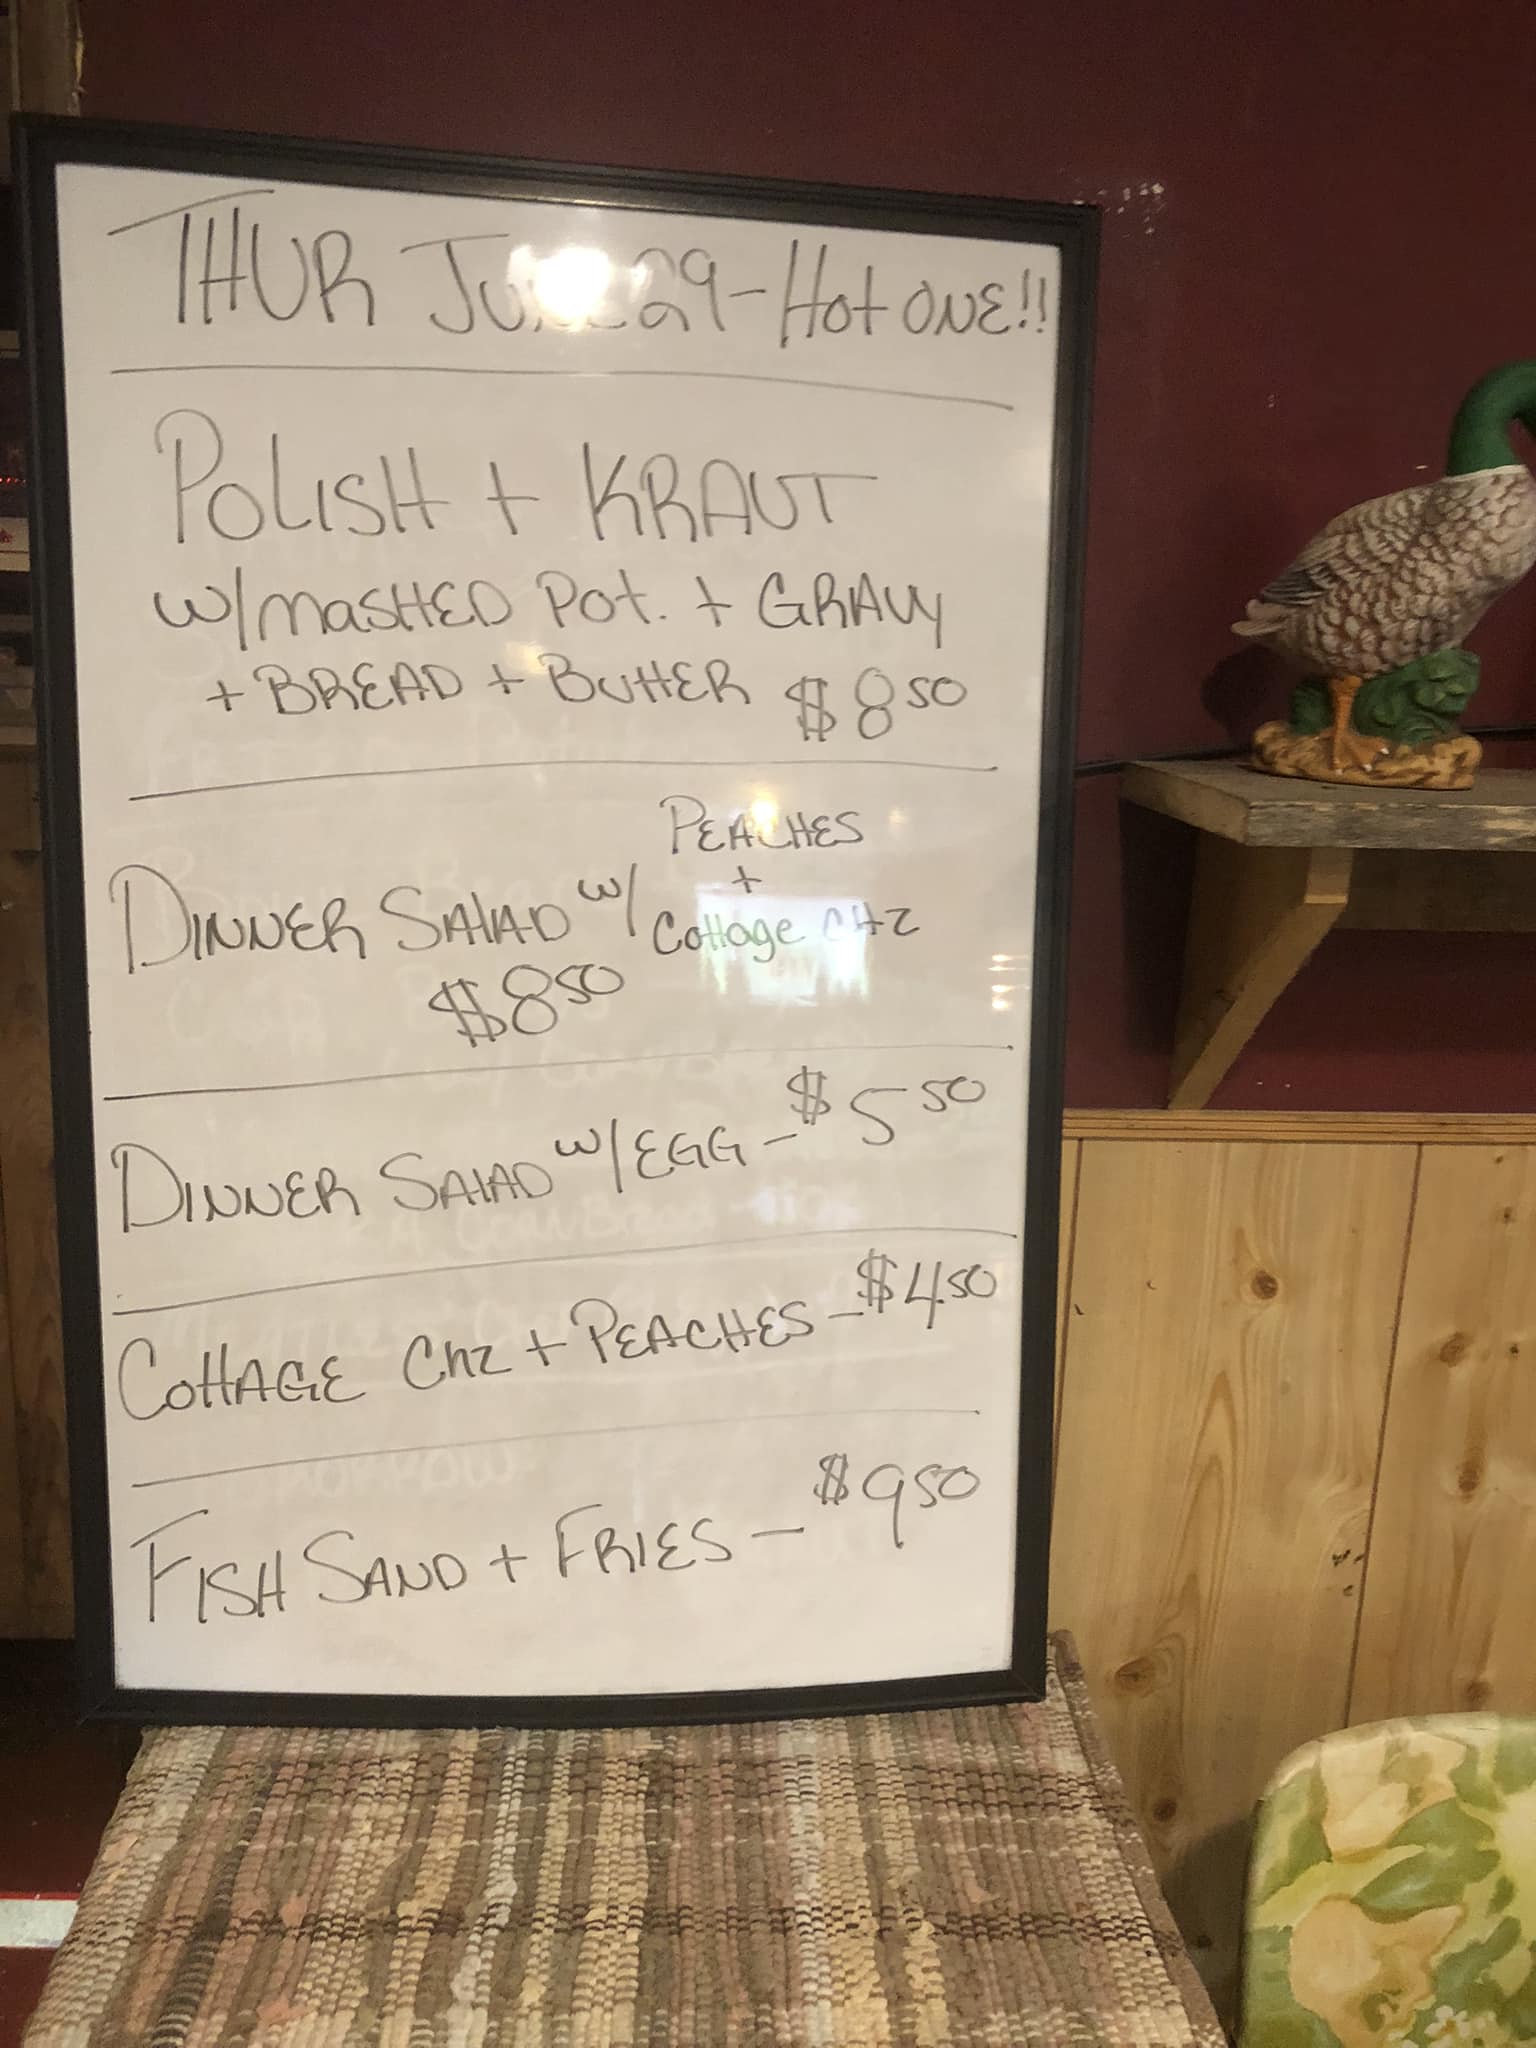 THUR JUNE 29 - Hot ONE!!
POLISH + KRAUT
w/MASHED Pot. + GRAVY
+ BREAD + BUTTER $8 50
DINNER SALAD w/ PEACHES + Cottage CHZ
$8 50
DINNER SALAD w/EGG - $5 50
COTTAGE CHZ + PEACHES - $4 50
FISH SAND + FRIES - $9 50